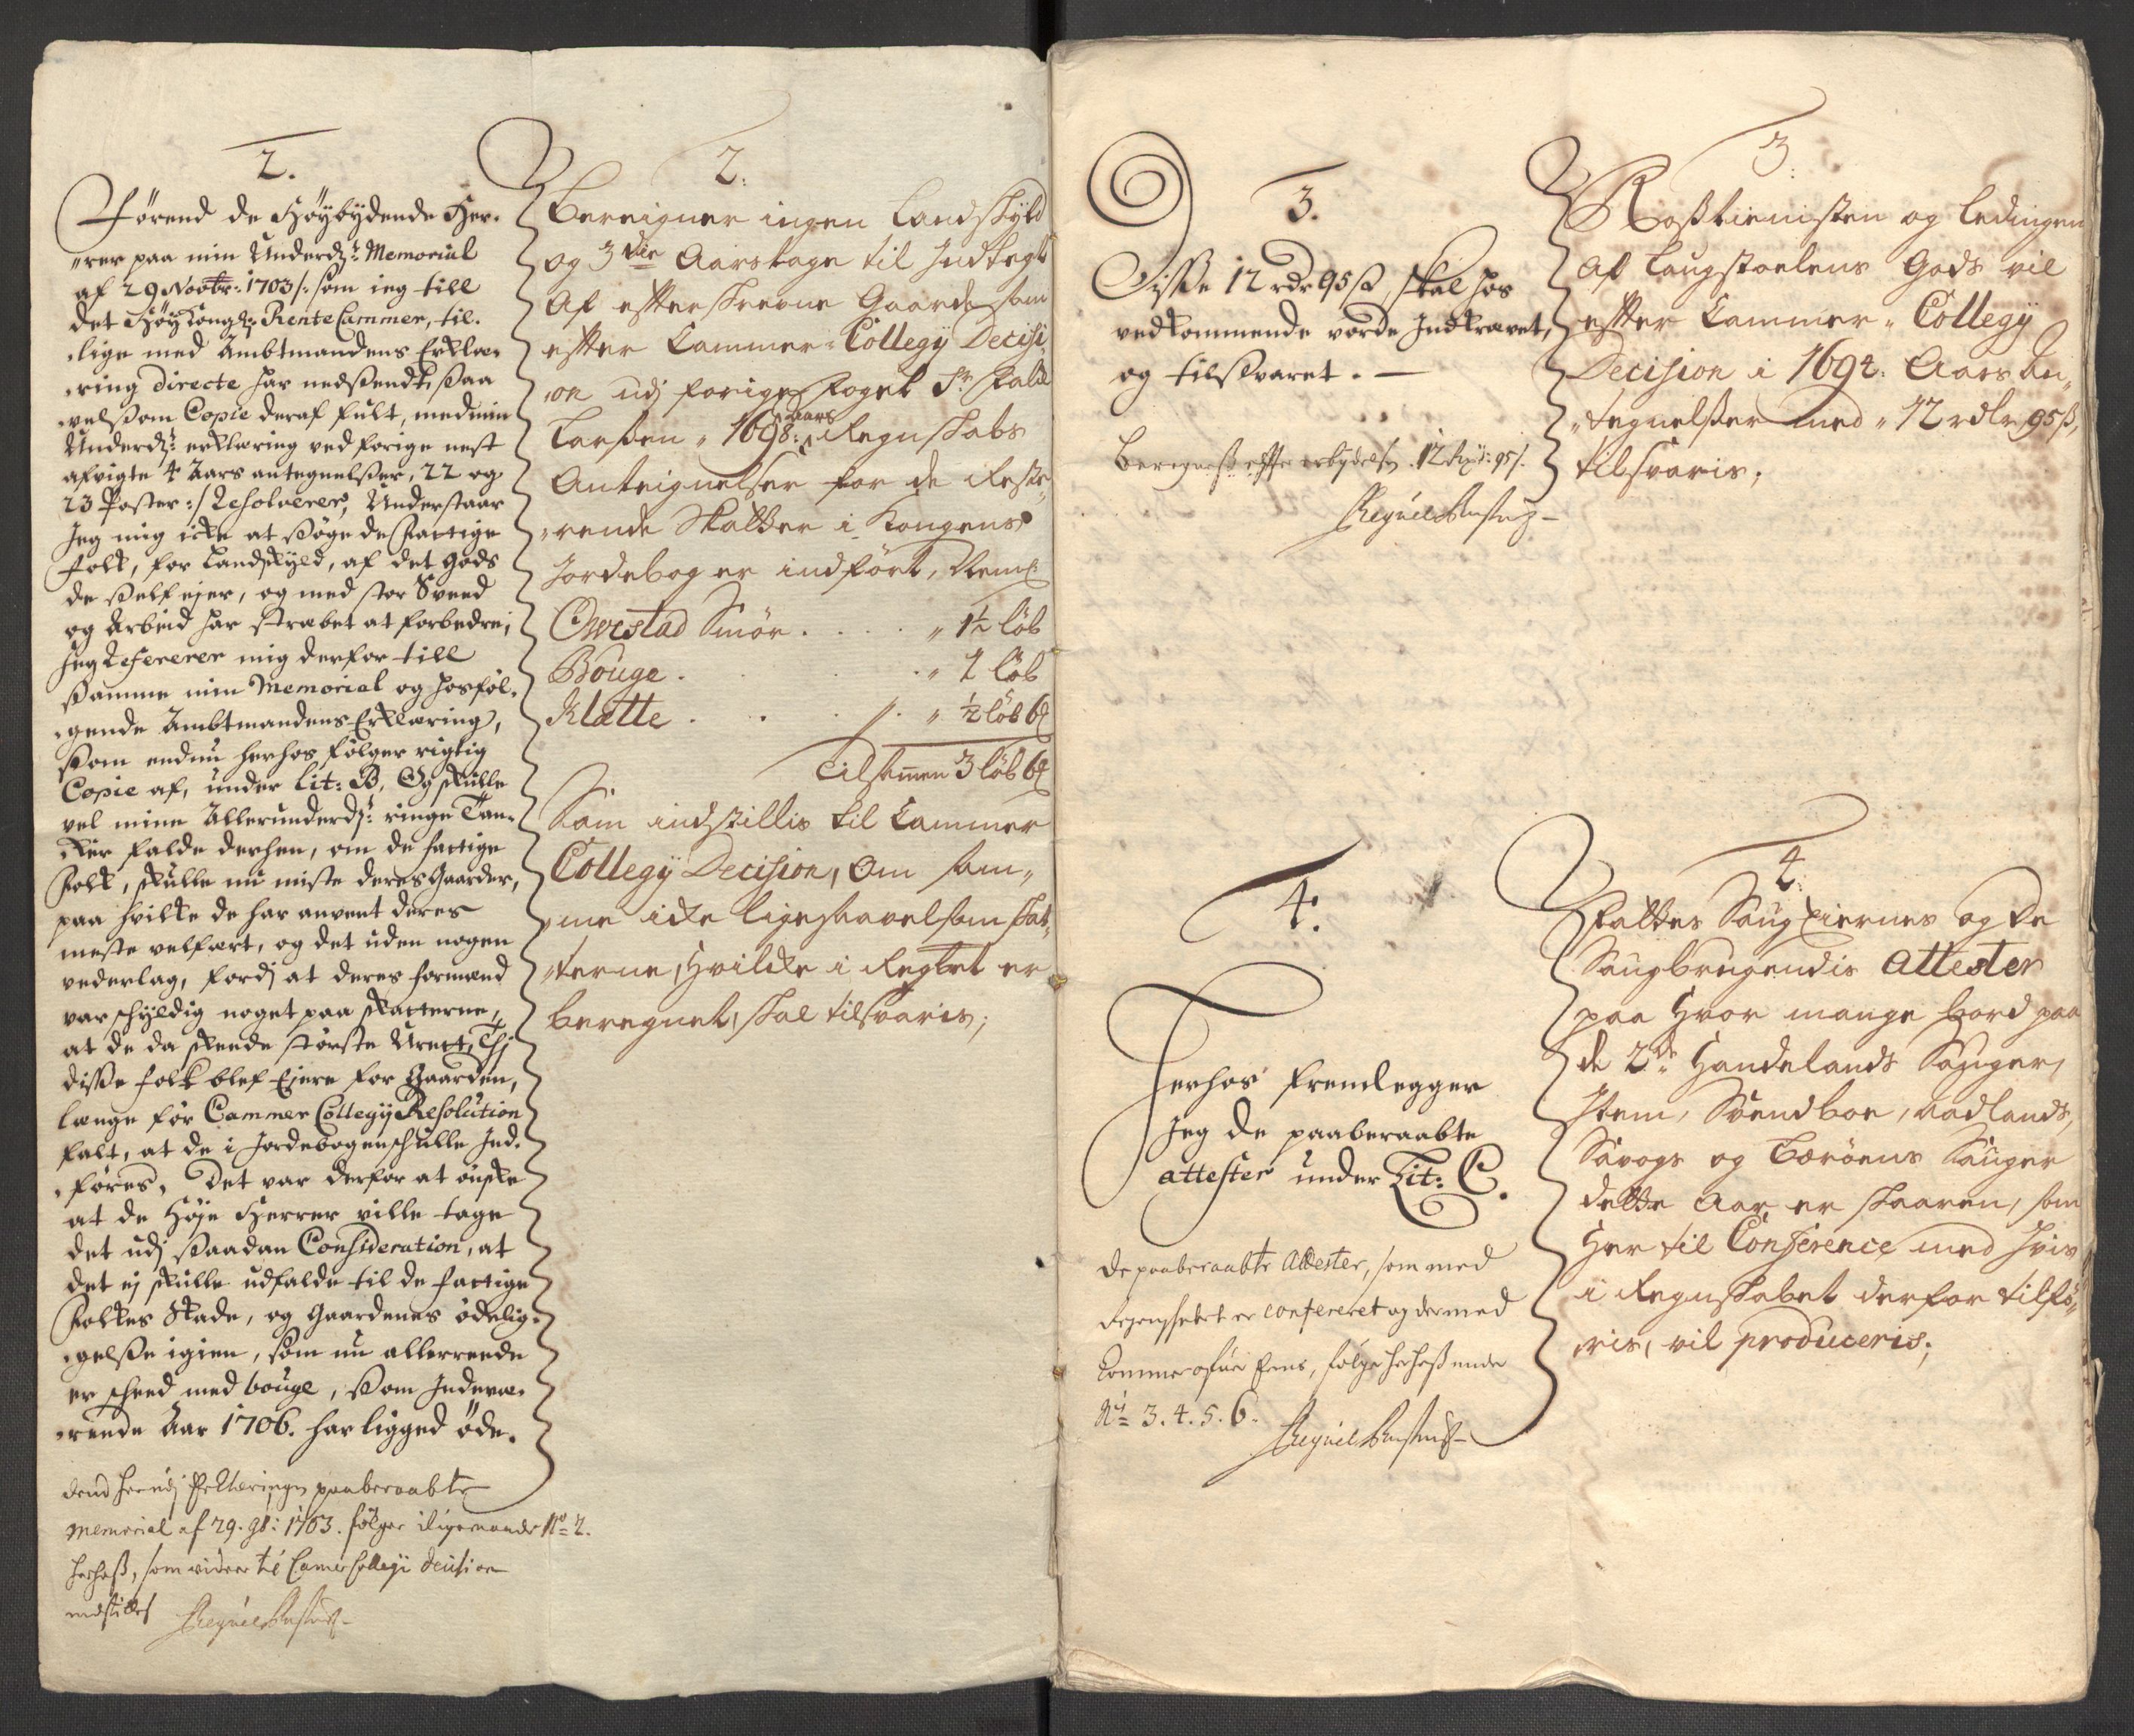 2.
Førend de Høybydende Her-
"rer paa min Underdz: Memorial
af 29 Novbr: 1703/: som ieg till
det Høy Kongl: Rente Cammer, til-
"lige med Ambtmandens Erklæ-
"ring directe har nedsendt, saa
"vel som Copie deraf fult, med min
Underdz: erklæring ved forige nest
afvigte 4 Aars antegnelsser, 22 og
23 Poster :/ Resolverer, Understaar
Jeg mig icke at søge de fattige
folk, for Landskyld, af det gods
de self ejer, og med stor Sveed
og Arbeid har strabet at forbedre;
Jeg Refererer mig derfor till
samme min Memorial og hosføl-
"gende Ambtmandens Erklæring,
som endnu herhos følger rigtig
Copie af, under Lit: B, Og skulle
vel mine Allerunderdz: ringe Tan-
"ker falde derhen, om de fattige
folk, skulle nu miste deres Gaarder,
paa hvilke de har anvent deres
meste velfært, og det uden nogen
vederlag, fordj at deres formænd
var schyldig noget paa skatterne,
at de da skeede største Uret, Thj
disse folk blef Ejere for Gaarden,
længe før Cammer Collegij Resolution
falt, at de i Jordebogen schulle Ind-
"føres, Det var derfor at ønske
at de Høje Herrer ville tage
det udj saadan Consideration, at
det ej skulle udfalde til de fattige
folkes Skade, og Gaardenes ødelig-
"gelsse igien, som nu allerreede
er scheed med bouge, som Indevæ-
"rende Aar 1706. har ligged øde.
dend herudj Erklæringen paaberaabte
Memorial af 29. 9br: 1703. følger No 2.
herhoß, som videre til Camer Collegij decision
indstilles
2.
Beregner ingen Landskyld
og 3die Aarstage til Indtegt
Af efterskrevne Gaarde som
efter Cammer-Collegij Decisi-
"on udj forige foget Sr
Larsen " 1698: Aars Regnskabs
Anteignelser for de Reste-
"rende Skatter i Kongens
Jordebog er indført, Neml:
Qwestad Smør . . . . " 1½ løb
Bouge . . . " 1 løb
Klætte . . . " ½ løb 6
Tilsamen 3 løb 6
Som indstillis til Cammer
Collegij Decision, Om sam-
"me icke ligesaavel som Skat-
"terne, hvilcke i Regbet er
beregnet, skal tilsvaris;
3.
Disse 12 rdr 95 ß, skal hos
vedkommende vorde Indkrævet,
og tilsvaret. —
Beregnes efter erbydelse 12 95 ß.
3.
Rosztienisten og Ledingen
Af Laugstoelens Gods vil
efter Cammer-Collegij
Decision i 1692. Aars An-
"tegnelsser med " 12 rdlr 95 ß,
tilsvaris;
4.
Herhos fremlegger
Jeg de paaberaabte
attester under Lit: C.
de paaberaabte Attester, som med
Regenskabet er confereret og dermed
Kommer, følger herhoß under
No 3. 4. 5. 6.
4.
Fattes Saug Eiernes og de
Saugbrugendis Attester
paa hvor mange bord paa
de 2de Handelands Sauger,
Item, Svendboe, Aadlands,
Sævogs og Bærøens Sauger
dette Aar er skaaren, som
her til Conference med hvis
i Regnskabet derfor tilfø-
"ris, vil produceris;